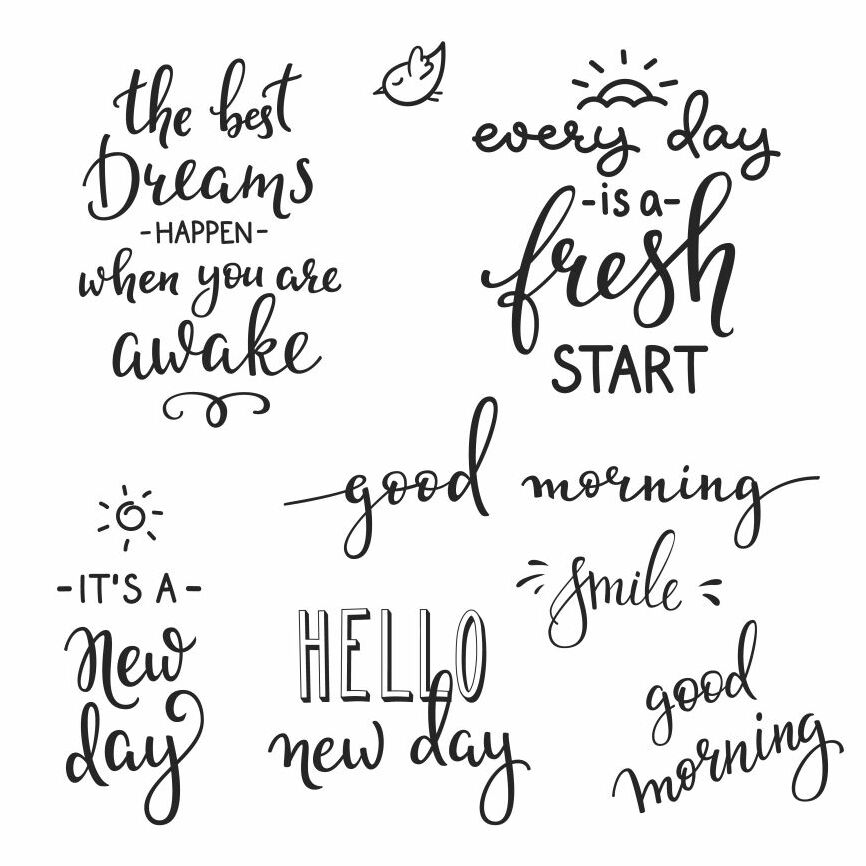 the best
Dreams
-HAPPEN-
when you are
awake
every day
-is a-
fresh
START
good morning
smile
-IT'S A-
New
day
HELLO
new day
good
morning